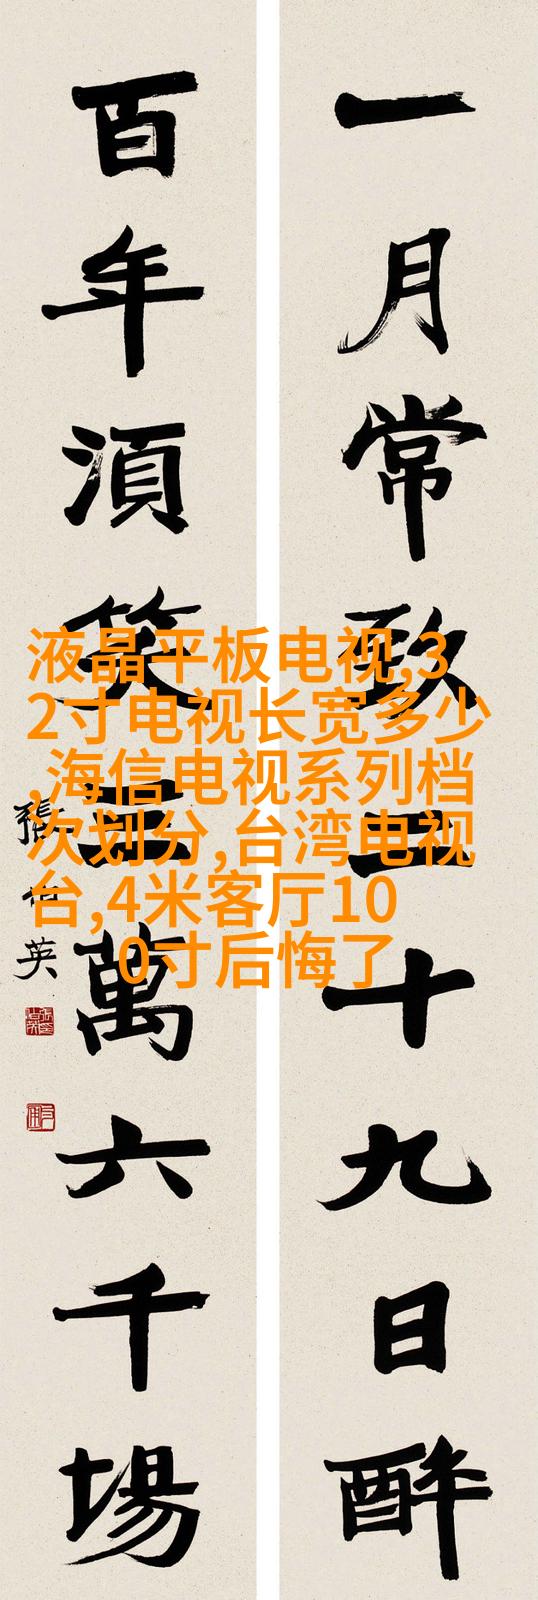 一月常二十九日醉
百年湏笑三萬六千場
張伯英
液晶平板电视,3
2寸电视长宽多少
,海信电视系列档
次划分,台湾电视
台,4米客厅10
0寸后悔了